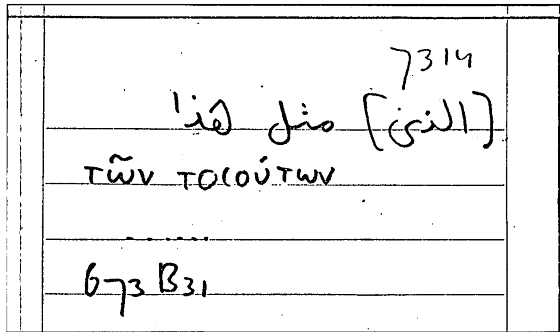 7314
[الذين] مثل هذا
τῶν τοιούτων
........
673 B31